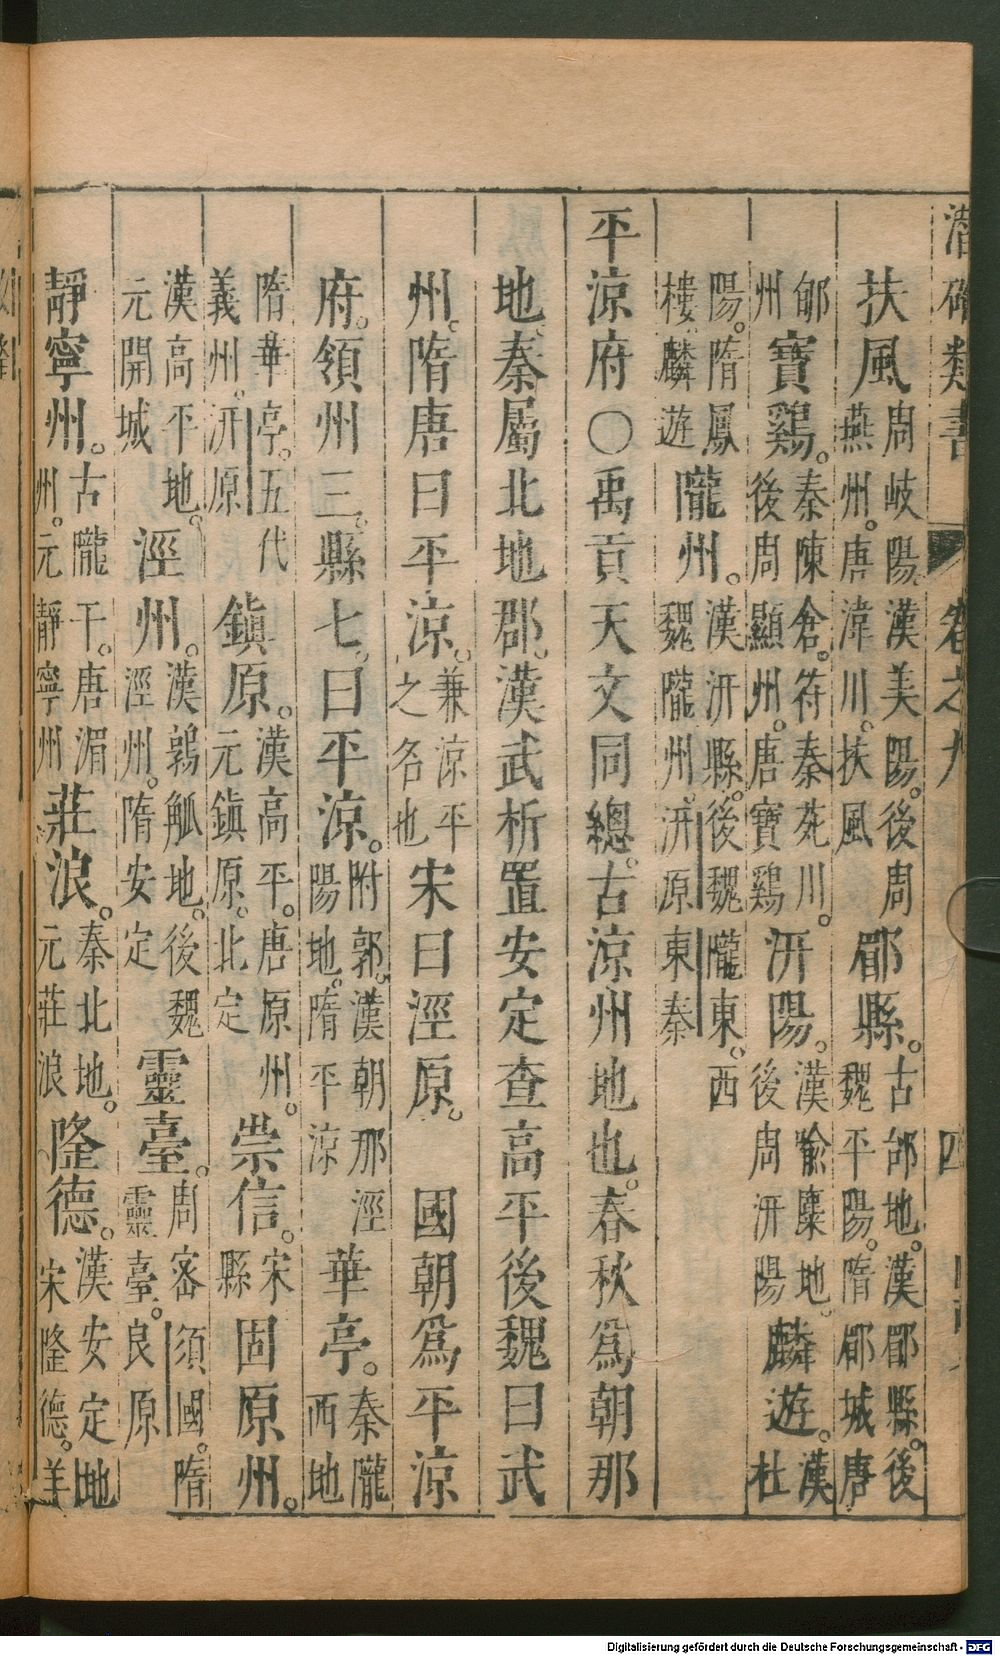 潜確類書 卷之九 四
扶風周岐陽。漢美陽。後周燕州。唐湋川。扶風郿縣。古邰地。漢郿縣。後魏平陽。隋郿城唐
郇州寶鷄。秦陳倉。符秦苑川。後周顯州。唐寶鷄汧陽。漢隃麋地。後周汧陽麟遊。漢杜
陽。隋鳳樓。麟遊隴州。漢汧縣。後魏隴東。西魏隴州。汧原東秦
平涼府〇禹貢天文同總。古涼州地也。春秋爲朝那
地。秦屬北地郡。漢武析置安定查高平後魏曰武
州。隋唐曰平涼。兼涼平之名也宋曰涇原。 國朝爲平涼
府。領州三。縣七。曰平涼。附郭。漢朝那涇陽地。隋平涼華亭。秦隴西地
隋華亭。五代義州。汧原鎮原。漢高平。唐原州。元鎮原。北定崇信。宋縣固原州。
漢高平地。元開城涇州。漢鶉觚地。後魏涇州。隋安定靈臺。周密須國。隋靈臺。良原
靜寧州。古隴干。唐渭州。元靜寧州莊浪。秦北地。元莊浪隆德。漢安定地宋隆德。羊
Digitalisierung gefördert durch die Deutsche Forschungsgemeinschaft - DFG